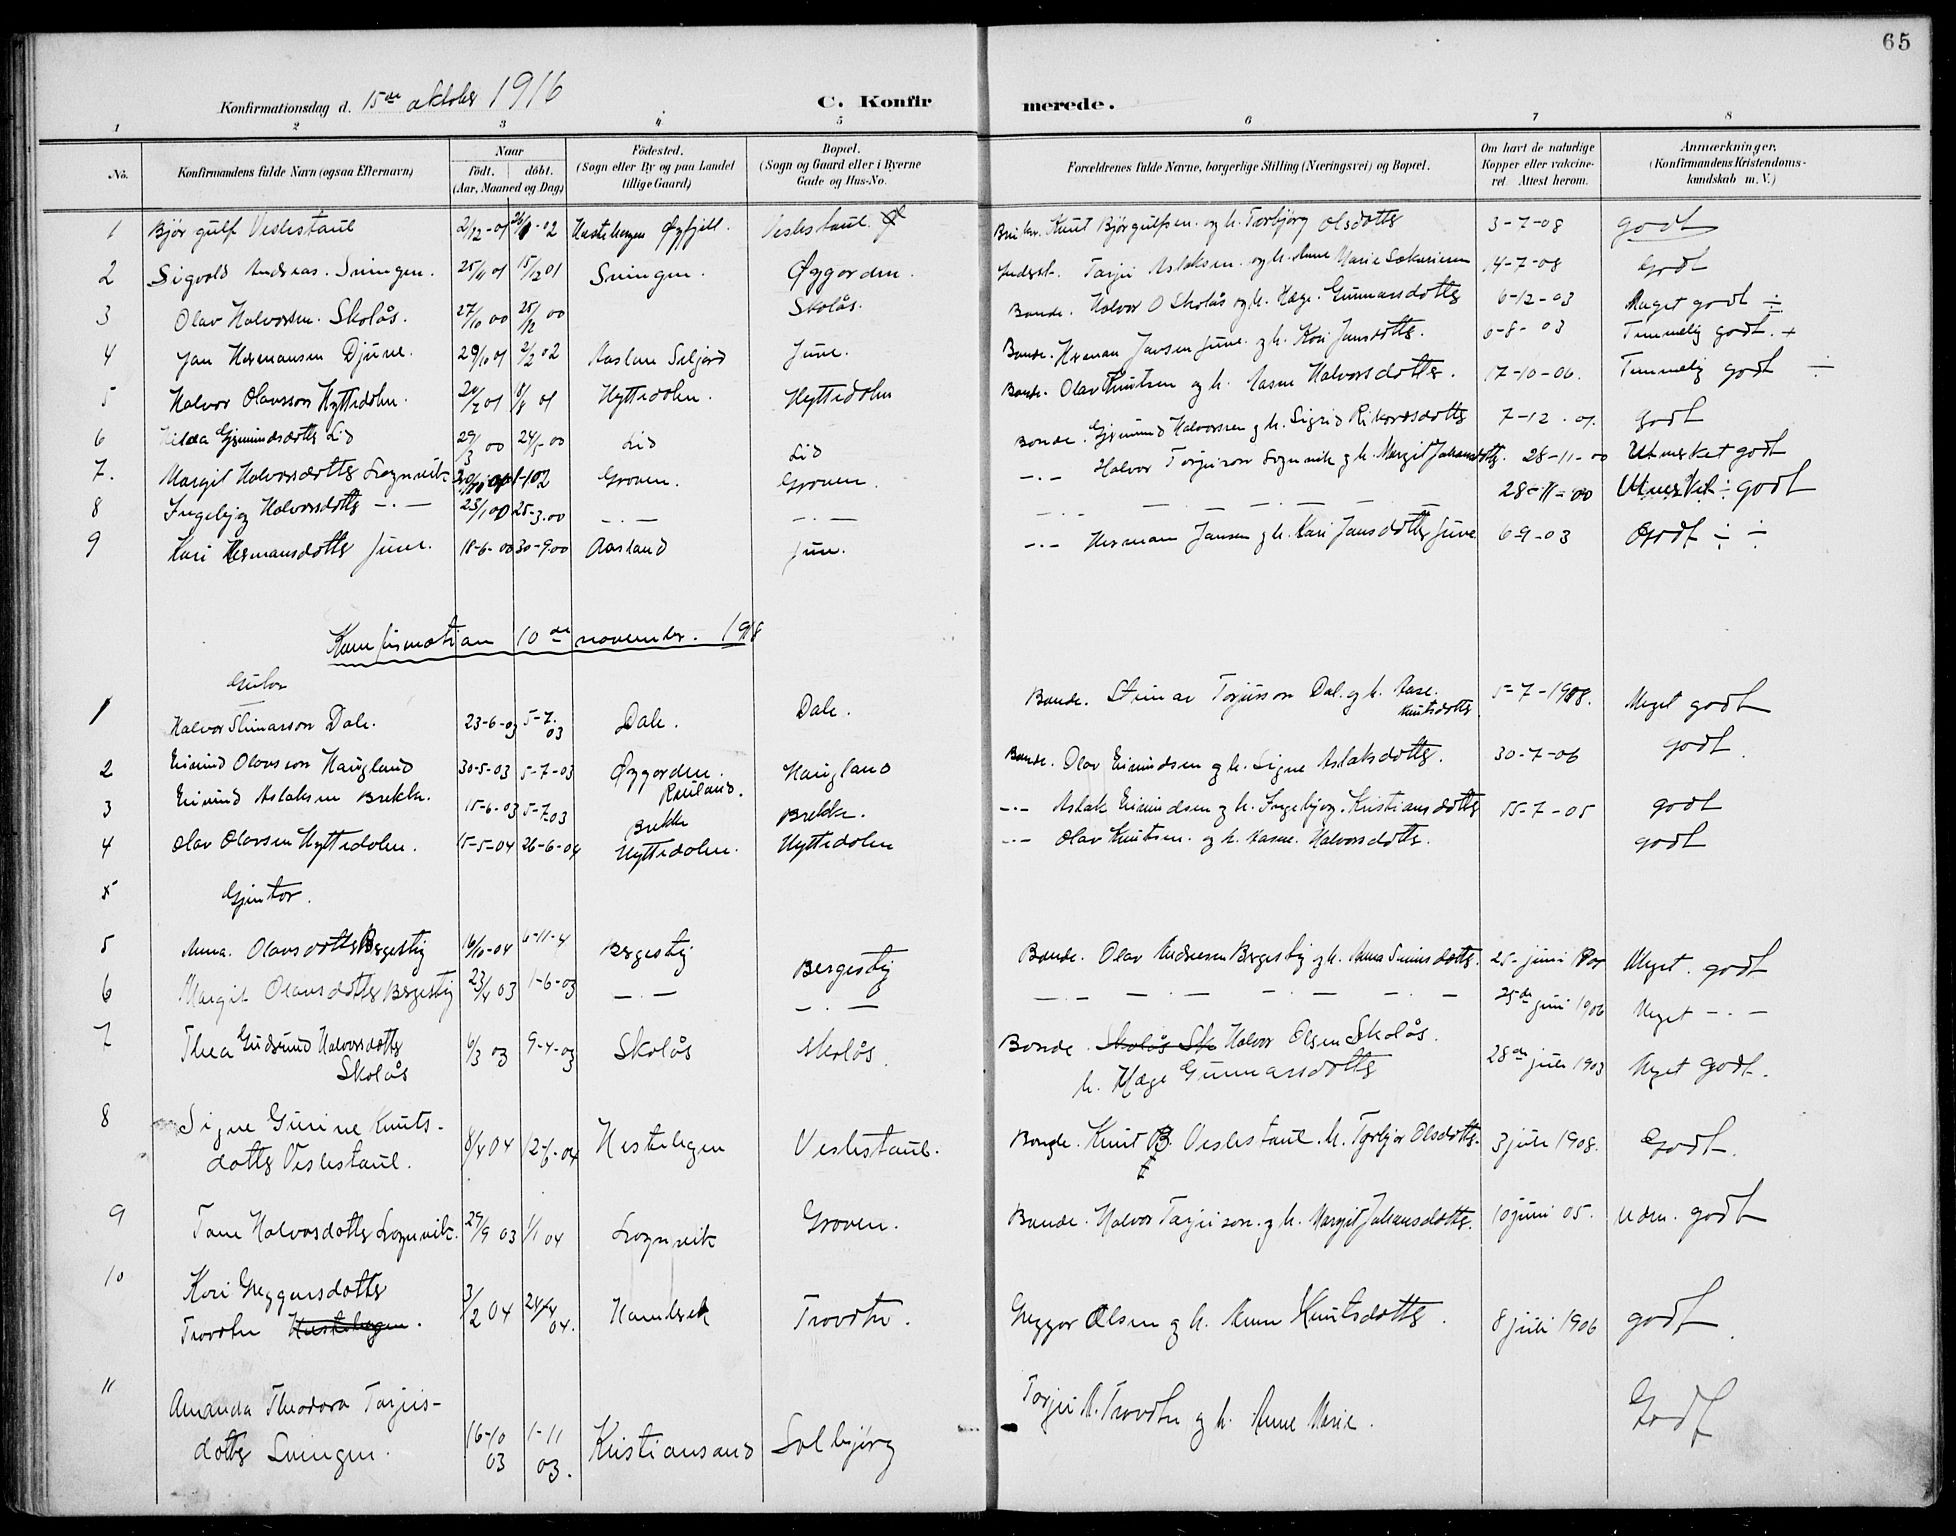 65
Konfirmationsdag d. 15de oktober 1916
C. Konfirmerede.
1 2 3 4 5 6 7 8
No. Konfirmandens fulde Navn (ogsaa Efternavn) Naar født. døbt. (Aar, Maaned og Dag) Fødested. (Sogn eller By og paa Landet tillige Gaard) Bopæl. (Sogn og Gaard eller i Byerne Gade og Hus-No. Forældrenes fulde Navne, borgerlige Stilling (Næringsvei) og Bopæl. Om havt de naturlige Kopper eller vakcineret. Attest herom. Anmærkninger. (Konfirmandens Kristendomskundskab m. V.)
1 Bjørgulf Veslestaul 2/12-01 -02 Hestehagen Øyfjell. Veslestaul. Knut Bjørgulfsen. og h. Torbjørg Olsdotter 3-7-08 godt
2 Sigvald Andreas. Sningen. 25/11 01 15/12 01 Sningen. Øygarden. Tarjei Aslaksen. og h. Anne Marie 14-7-08 Godt
3 Olav Halvorsen. Skolås. 27/10 00 25/12 00 Skolås. Bonde. Halvor O Skolås og h. Hæge. Gunnarsdotter 6-12-03 Meget godt ÷
4 Jan Hermansen Djuve. 29/10 01 2/2 02 Aasland Seljord Juve. Bonde. Herman Jansen Juve. og h. Kari Jansdotter. 6-8-03 Temmelig godt. +
5 Halvor Olavsson Hyttedalen. 20/7 01 /8 01 Hyttedalen. Hyttedalen Bonde. Olav Knutsen og h. Aasne Halvorsdotter. 17-10-06. Temmelig godt ÷
6 Hilda Gjermundsdotter Lid 29/3 00 24/5-00 Lid Lid Bonde. Gjermund Halvorsen og h. Sigrid Rikardsdotter 7-12-01. godt
7. Margit Halvorsdotter Lognvik Groven. Groven. -.- Halvor Torjusson Lognvik og h. Margit Johansdotter. 28-11-00 Utmerket godt
8 Ingebjør Halvorsdotter -.- 23/1 00 25-3-00 -.- -.- -.- - - - - 28-11-00 Utmerket ÷ godt
9 Kari Hermansdotter Juve. 18-6-00 30-9-00 Aasland Juve. -.- Herman Jansen og h. Kari Jansdotter Juve 6-9-03 Godt ÷ ÷
Kumfirmation 10de november. 1918
Gutar
1 Halvor Steinarsson Dale. 23-6-03 5-7-03 Dale. Dale. Bonde. Steinar Torjusson Dal. og h. Aase. Knutsdotter 5-7-1908. Meget godt
2 Eivind Olavsson Haugland 30-5-03 5-7-03 Øygarden. Rauland. Haugland Bonde. Olav Eivindsen og h. Signe Aslaksdotter. 30-7-06 godt.
3 Eivind Aslaksen Brekke. 15-6-03 5-7-03 Brekke Brekke. -.- Aslak Eivindsen og h. Ingebjør. Kristiansdotter 15-7-05 godt
4 Olav Olavsen Hyttedalen. 15-5-04 26-6-04 Hyttedalen. Hyttedalen -.- Olav Knutsen. og h. Aasne. Halvorsdotter. godt
5 Gjentor.
5 Anna. Olavsdotter Bergestig 16/10-04 6-11-4 Bergestig Bergestig Bonde. Olav Andresen Bergestig og h. Anna 25-juni Meget. godt
6 Margit Olavsdotter Bergestig 23/4 03 1-6-03 -.- -.- -.- -.- -.- - 25de juni 1906 Meget -.-
7 Thea Gudrund Halvorsdotter Skolås 6/3 03 9-4-03 Skolås Skolås. Bonde. Skolås Sk Halvor Olsen Skolås. h. Hæge Gunnarsdotter 28de juli 1903 Meget godt.
8 Signe Gurine Knutsdotter Veslestaul. 8/4 04 12-6-04 Hestehagen Veslestaul. Bonde. Knut B Veslestaul. h. Torbjør Olsdotter. 3 juli 1908. Godt.
9 Tone Halvorsdotter Lognvik. 29/9 03 1/1 04 Lognvik Groven. Bonde. Halvor Tarjeison. og h. Margit Johansdotter. 10 juni 05. udm. godt
10 Kari Greggarsdotter Trovatn Hestehagen. 3/2 04 04. Trovatn. Greggor Olsen og h. Anne Knutsdotter. 8 juli 1906 godt.
11 Amanda Theodora Tarjeisdotter Sningen. 16-10 03 1-11 03. Kristiansand Solbjørg Tarjei A. Trovatn og h. Anne Marie. Godt